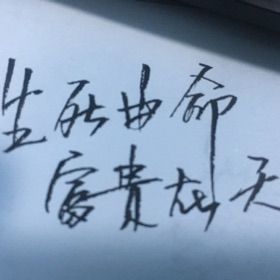 生死由命
富貴在天